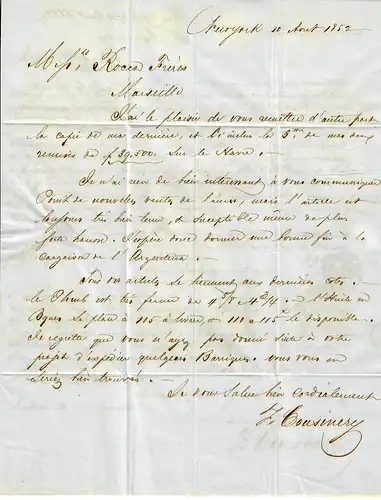 New york 10 Aout 1852
Mess.rs Rocca Frères
Marseille
J'ai le plaisir de vous remettre d'autre part
la copie de ma dernière, et l'inclus la 3.me de mes deux
remises de f 39,500. Sur le Havre. -
Je n'ai rien de bien interessant à vous communiquer
Point de nouvelles ventes de laines, mais l'article est
toujours très bien tenu, & suceptible même de plus
forte hausse. J'espère donc donner une bonne fin à la
cargaison de l'
Tous vos articles se tiennent aux dernières cotes. -
le Plomb est très ferme de 4 à 4
l'Huile en
à 115 à livrer, - 110 à 115 le disponible.
Je regrette que vous n'ayez pas donné suite à votre
projet d'expedier quelques Barriques. vous vous en
seriez bien trouvés. -
Je vous Salue bien cordialement
Cousinery